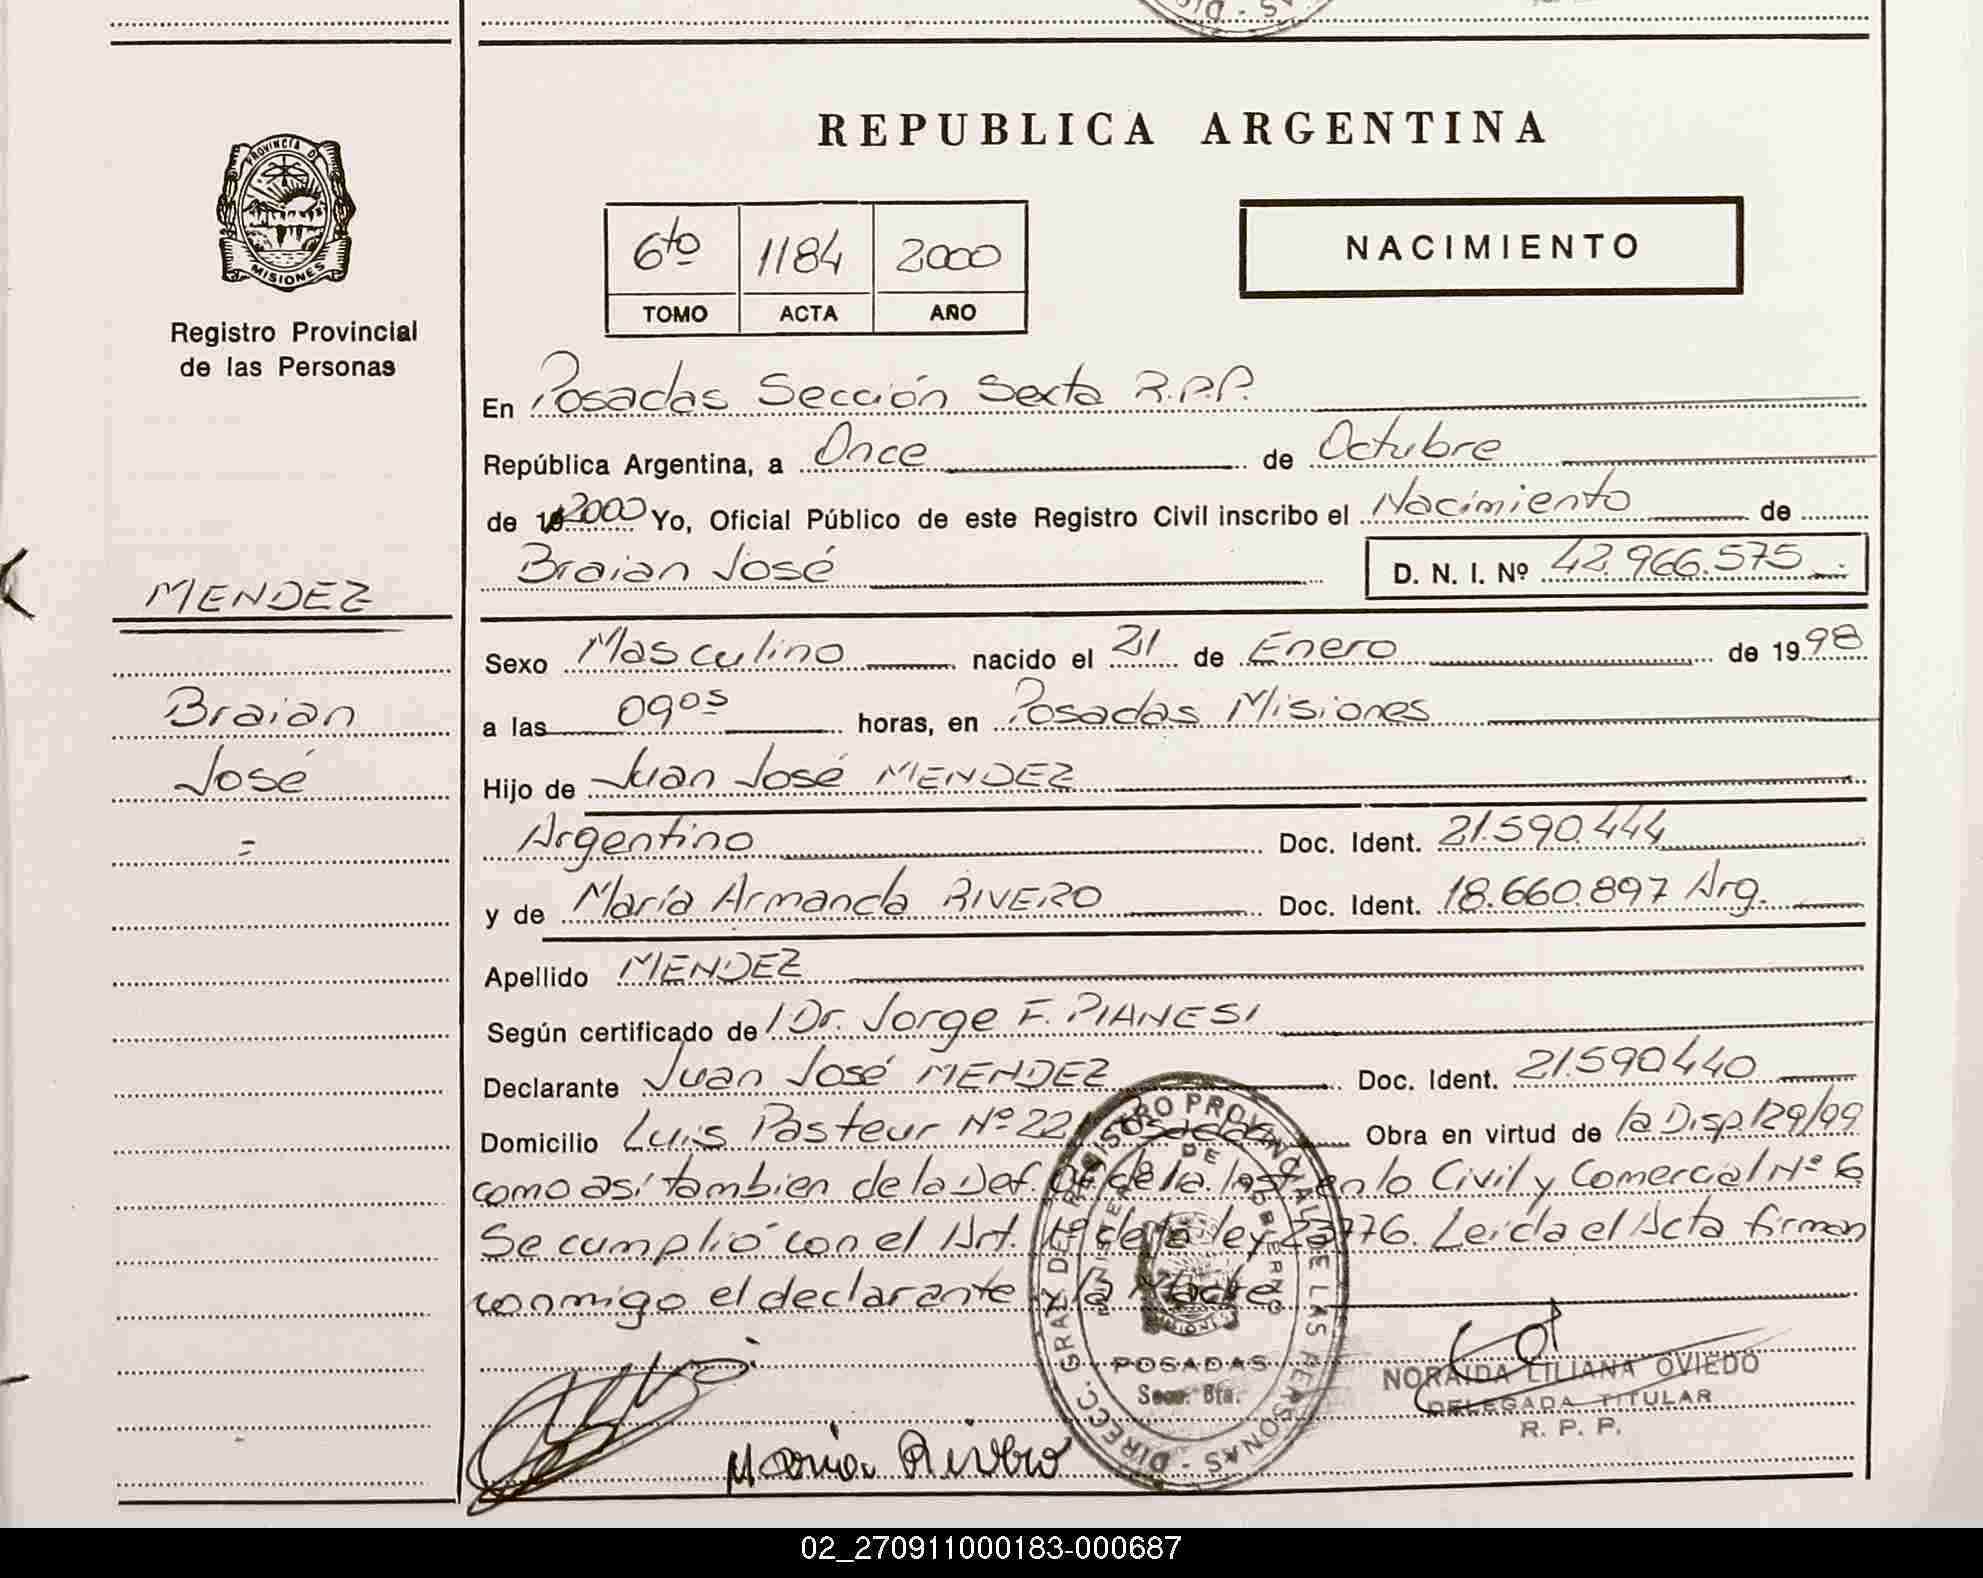 REPUBLICA ARGENTINA
PROVINCIA DE
MISIONES
Registro Provincial
de las Personas
6to 1184 2000
TOMO ACTA AÑO
NACIMIENTO
En Posadas Sección Sexta R.P.P.
República Argentina, a Once de Octubre
de 2000 Yo, Oficial Público de este Registro Civil inscribo el Nacimiento de
Braian José D. N. I. Nº 42.966.575
MENDEZ
Braian
José
=
Sexo Masculino nacido el 21 de Enero de 1998
a las 09os horas, en Posadas Misiones
Hijo de Juan José MENDEZ
Argentino Doc. Ident. 21.590.444
y de María Armanda RIVERO Doc. Ident. 18.660.897 Arg.
Apellido MENDEZ
Según certificado de Dr. Jorge F. PIANESI
Declarante Juan José MENDEZ Doc. Ident. 21.590440
Domicilio Luis Pasteur Nº 22 Posadas Obra en virtud de la Disp. 129/99
como así tambien de la Def. Of. de 1a. Inst. en lo Civil y Comercial Nº 6
Se cumplió con el Art. 1º de la ley 23776. Leída el Acta firman
conmigo el declarante y la Madre
DIRECC. GRAL. DEL REGISTRO PROVINCIAL DE LAS PERSONAS
MINISTERIO DE GOBIERNO
MISIONES
POSADAS
Secc. 6ta.
María Rivero
NORAIDA LILIANA OVIEDO
DELEGADA TITULAR
R. P. P.
02_270911000183-000687